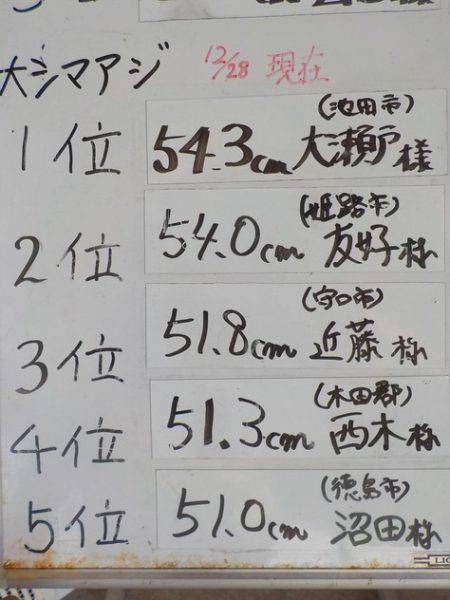 大シマアジ 12/28 現在
(池田市)
1位 54.3cm 大瀬戸様
(姫路市)
2位 54.0cm 友好様
(守口市)
3位 51.8cm 近藤様
(木田郡)
4位 51.3cm 西木様
(徳島市)
5位 51.0cm 沼田様